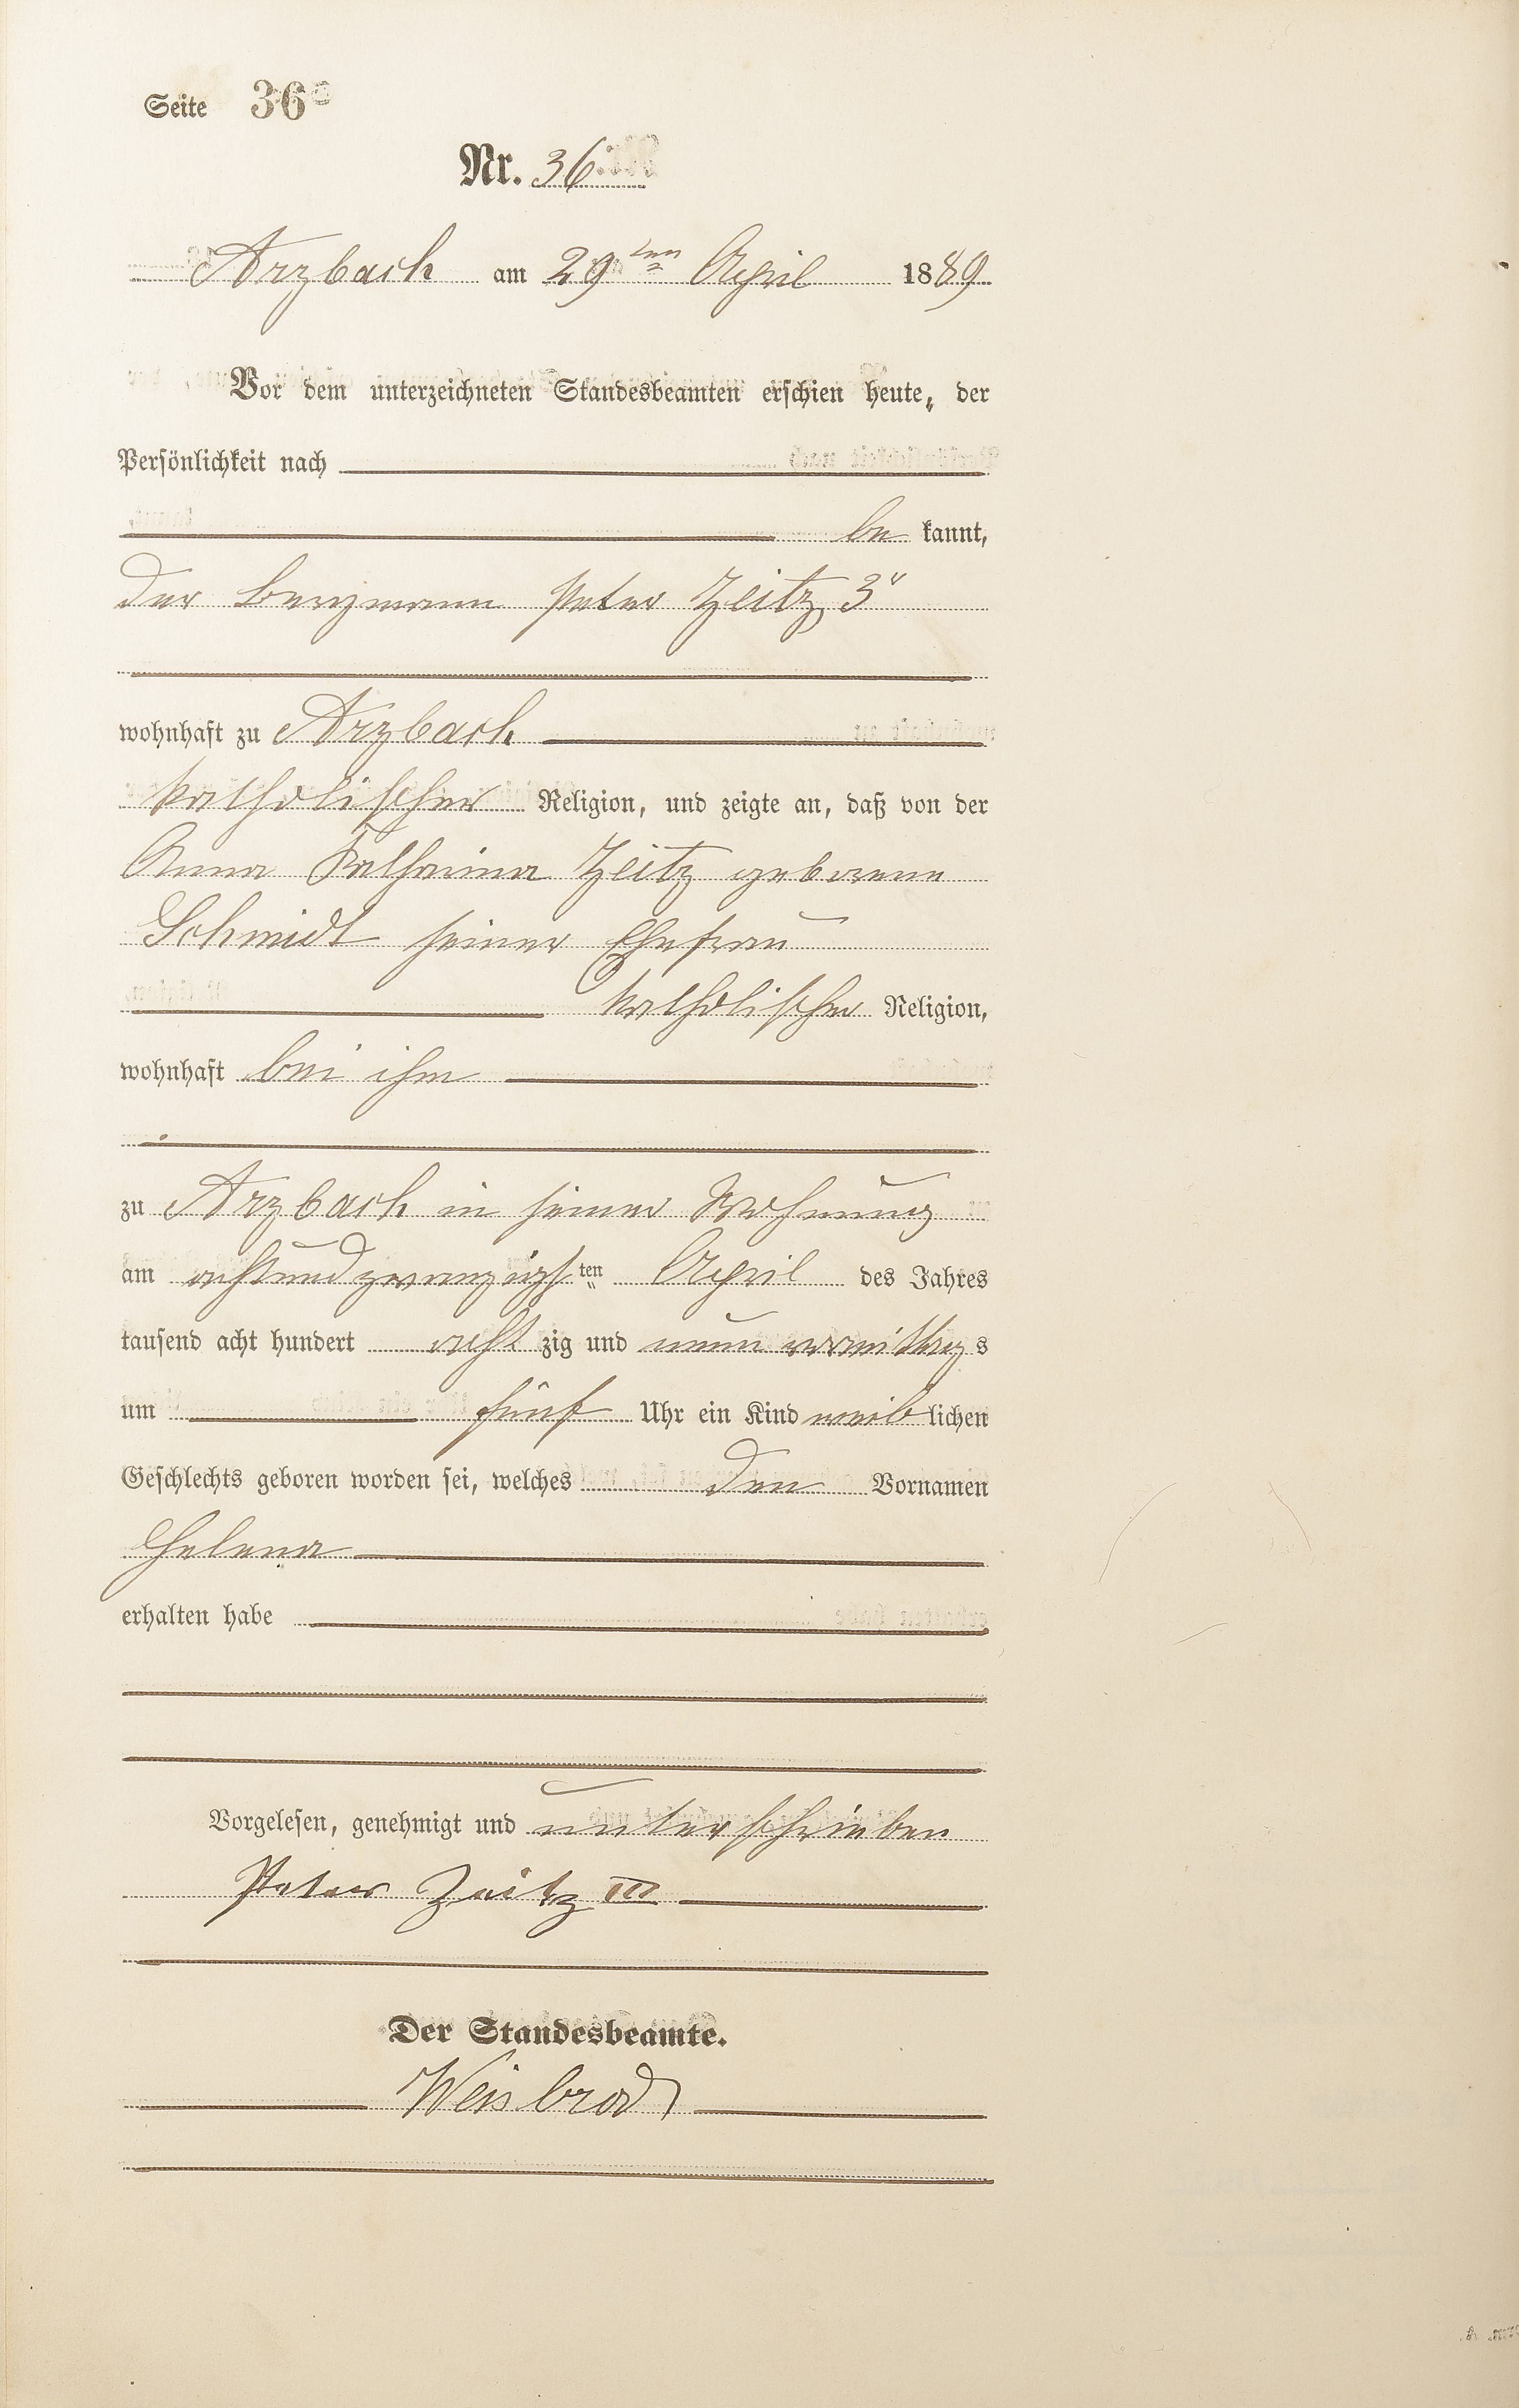 Seite 36
Nr. 36
Arzbach am 29ten April 1889
Vor dem unterzeichneten Standesbeamten erschien heute, der
Persönlichkeit nach
be kannt,
der Bergmann Peter Zeitz 3r
wohnhaft zu Arzbach
katholischer Religion, und zeigte an, daß von der
Anna Katharina Zeitz geborene
Schmidt seiner Ehefrau
katholischer Religion,
wohnhaft bei ihm
zu Arzbach in seiner Wohnung
am achtundzwanzigsten April des Jahres
tausend acht hundert acht zig und neun vormittags
um fünf Uhr ein Kind weiblichen
Geschlechts geboren worden sei, welches den Vornamen
Helena
erhalten habe
Vorgelesen, genehmigt und unterschrieben
Peter Zeitz III
Der Standesbeamte.
Weisbrod